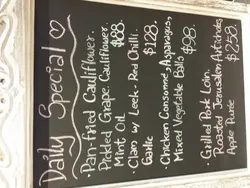 Daily Special ♡
• Pan-fried Cauliflower.
Pickled Grape. Cauliflower.
Mint Oil $88.
• Clam w/ Leek - Red Chilli.
Garlic $128.
• Chicken Consommé, Asparagus,
Mixed Vegetable Balls $98.
• Grilled Pork Loin.
Roasted Jerusalem Artichokes,
Apple Purée $258.